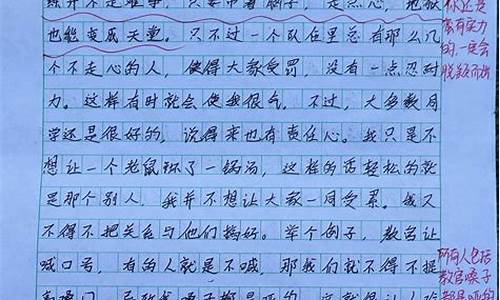 练并不是难事,只要带着脑子,走点心,地狱
也能变成天堂。只不过一个队伍里总有那么几
个不走心的人,使得大家受罚,没有一点忍耐
力。这样有时就会使我很气。不过,大多数同
学还是很好的,说得来也有责任心。我只是不
想让一个老鼠坏了一锅汤,这样的话轻松的就
是那个别人,我并不想让大家一同受累。我又
不得不把关系与他们搞好。举个例子,教官让
喊口号,有的人就是不喊,那我们就不得不提
你还是
蛮有实力
的,一定会
脱颖而出
所有人包括
教官嗓子